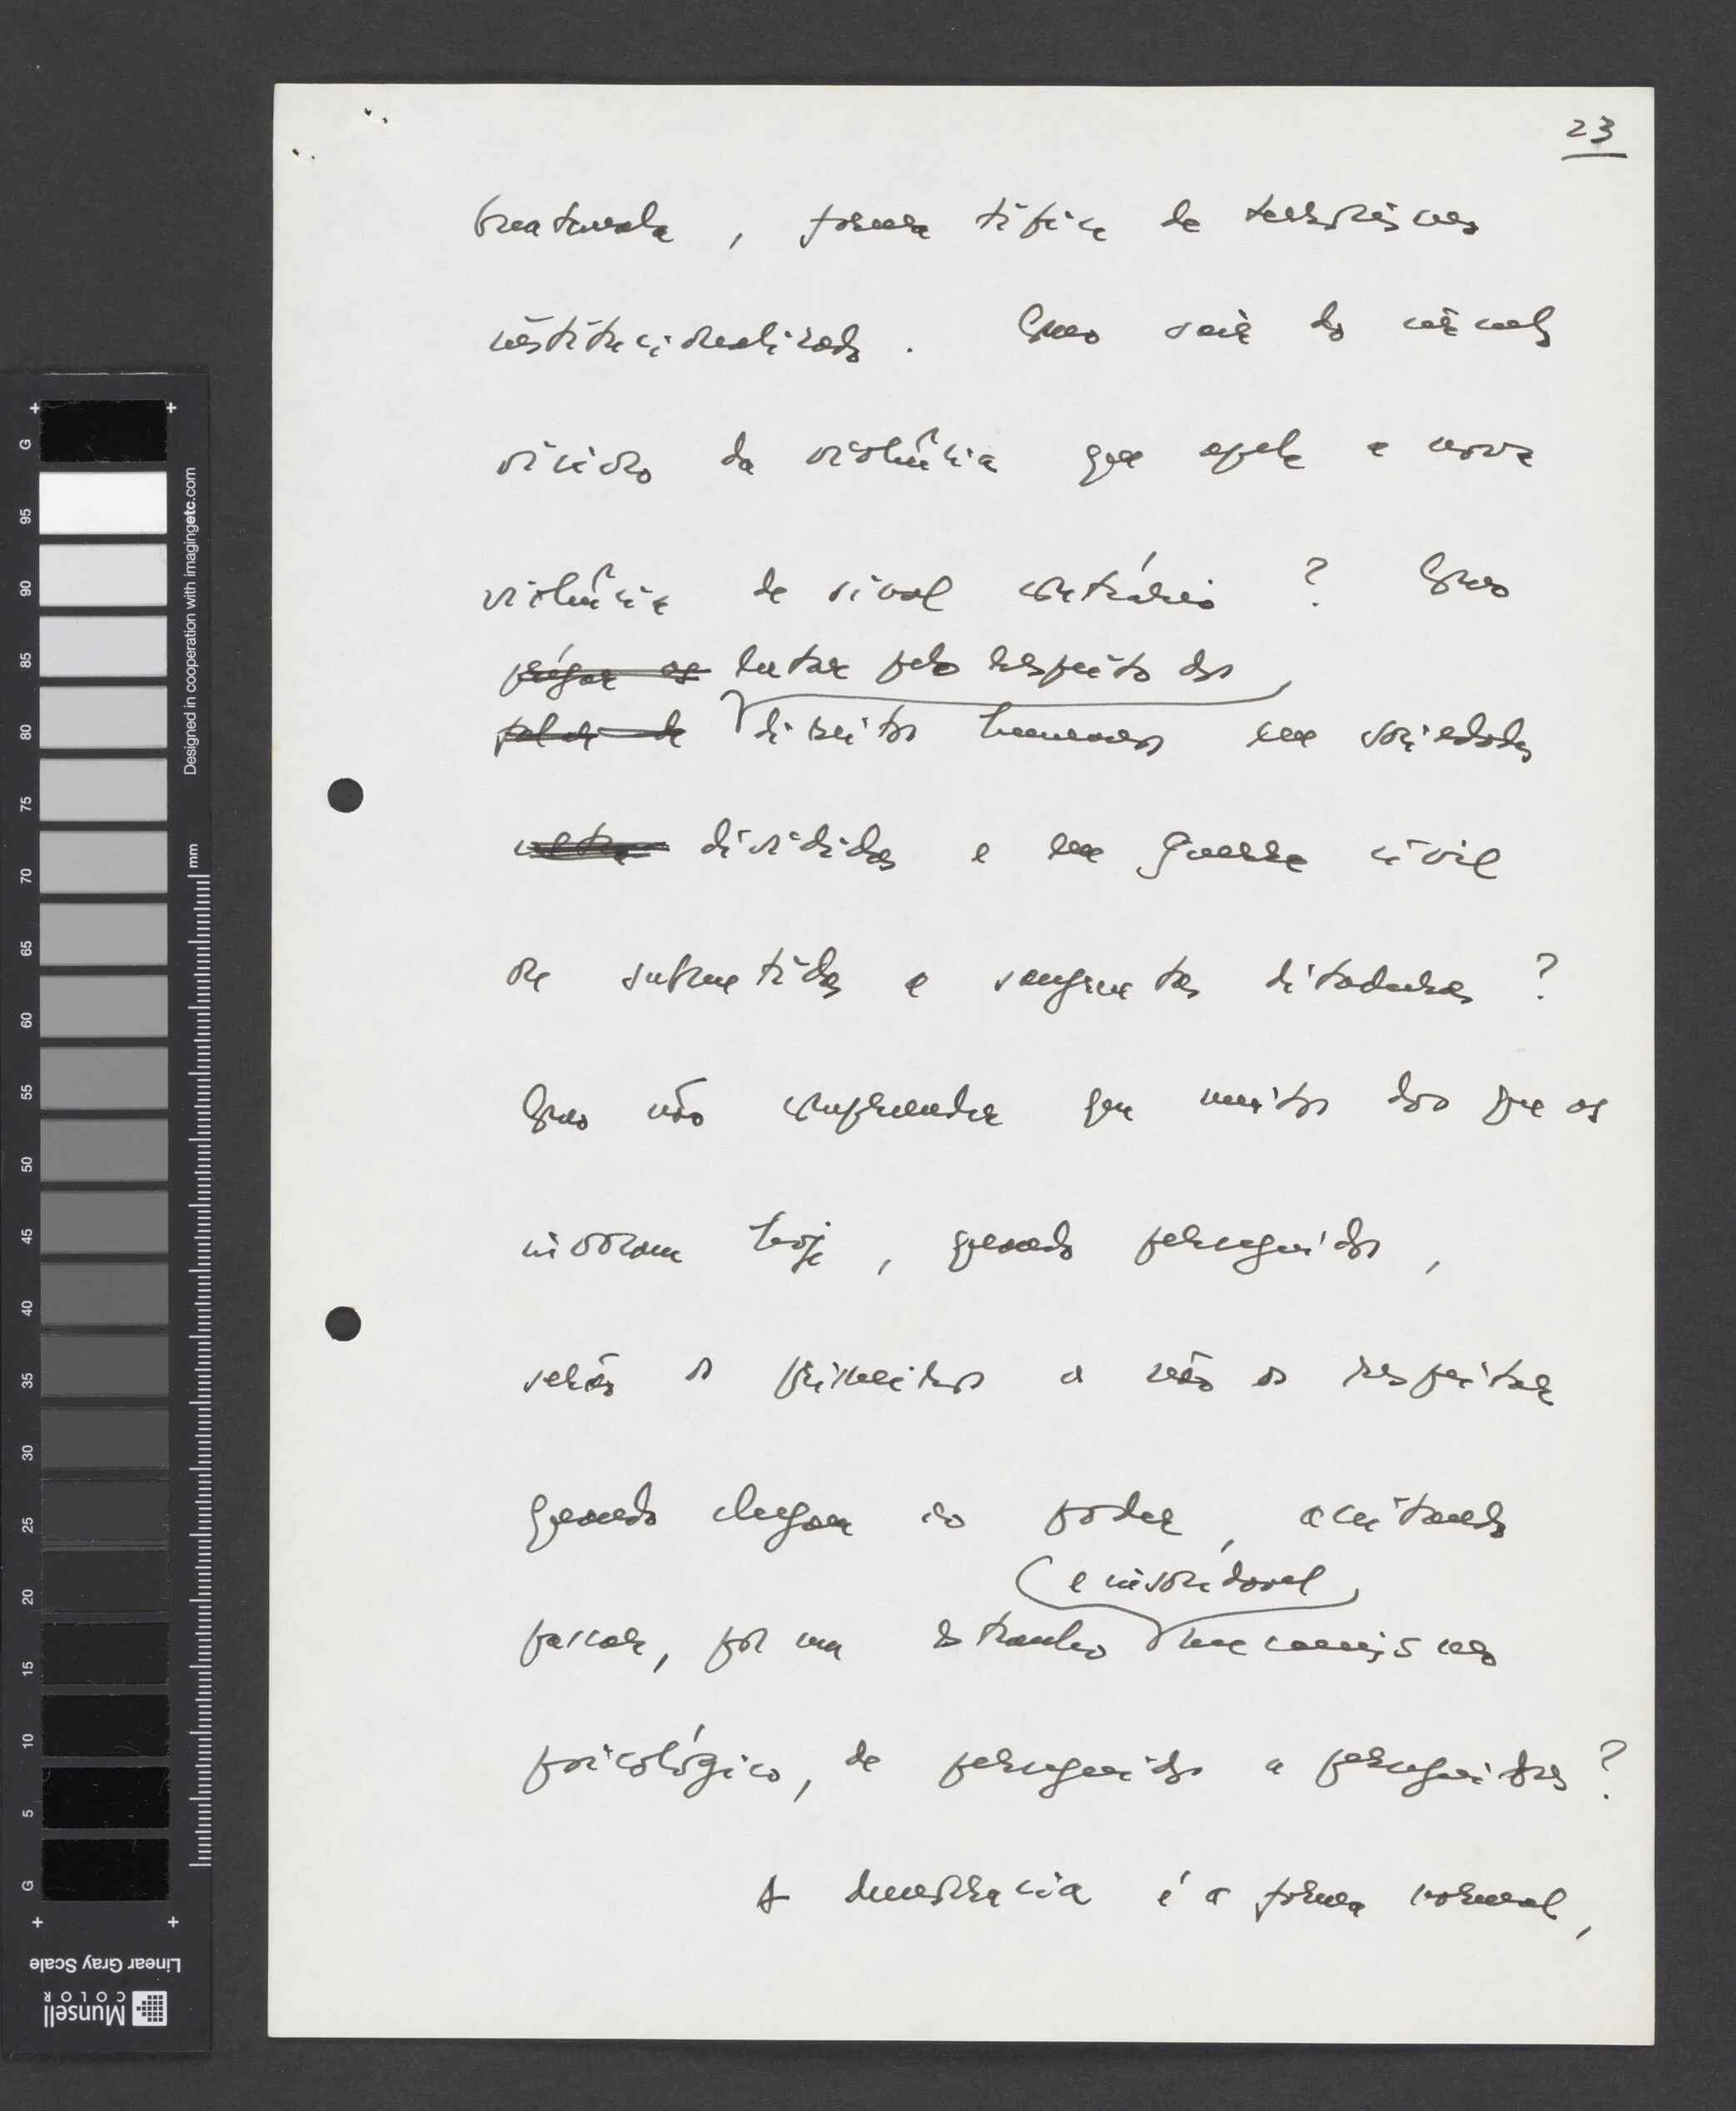 23
, forma típica de terrorismo
institucionalizado. Como sair do círculo
vicioso da violência que apela a nova
violência de sinal contrário? Como
lutar pelo respeito dos
direitos humanos em sociedades
divididas e em guerra civil
ou submetidas a sangrentas ditaduras?
Como não compreender que muitos dos que os
invocam hoje, quando perseguidos,
serão os primeiros a não os respeitar
quando chegam ao poder, aceitando
e insondável
passar, por um estranho mecanismo
psicológico, de perseguidos a perseguidores?
A democracia é a forma normal,
G
95
90
85
80
75
70
65
60
55
50
45
40
35
30
25
20
15
10
5
G
mm
Designed in cooperation with imagingetc.com
Linear Gray Scale
Munsell
COLOR